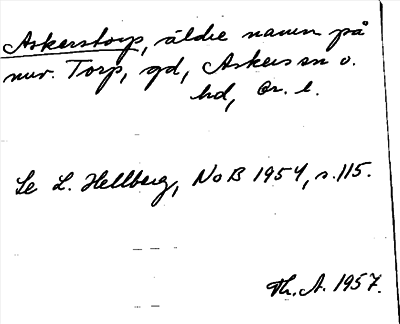 Askerstorp, äldre namn på
nuv. Torp, gd, Askers sn o.
hd, Ör. l.
Se L. Hellberg, NoB 1954, s. 115.
Th. A. 1957.